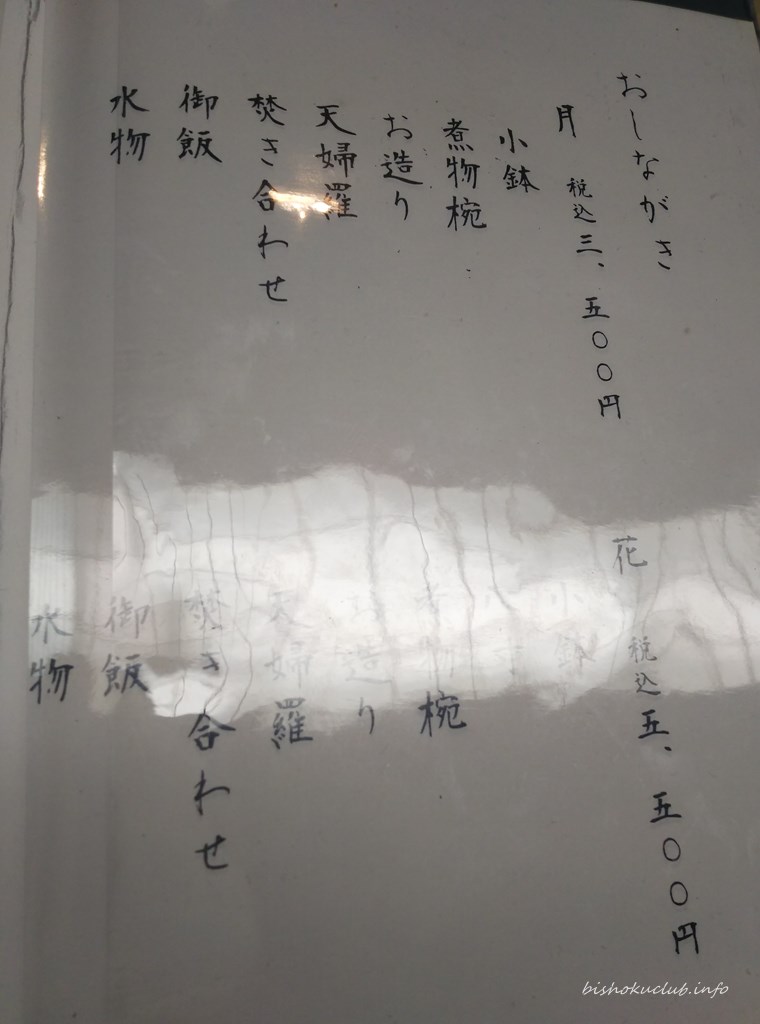 おしながき
月 税込三、五〇〇円
小鉢
煮物椀
お造り
天婦羅
焚き合わせ
御飯
水物
花 税込五、五〇〇円
小鉢
八寸
煮物椀
お造り
天婦羅
焚き合わせ
御飯
水物
bishokuclub.info